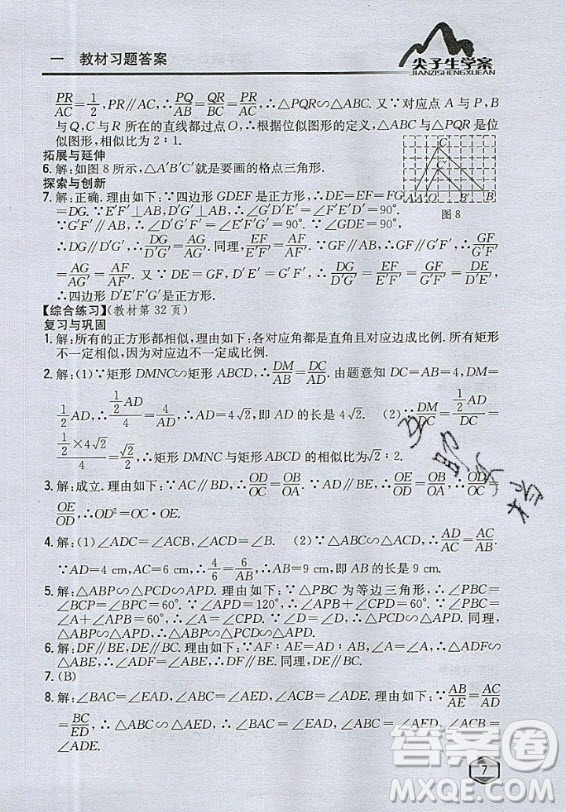 一 教材习题答案
尖子生学案
JIANZISHENGXUEAN
PR/AC=1/2,∴PQ/AB=QR/BC=PR/AC,∴△PQR∽△ABC.又点A与P、B
与Q、C与R所在的直线都过点O,根据位似图形的定义,△ABC与△PQR是位
似图形,相似比为2∶1.
拓展与延伸
6.解:如图8所示,△A′B′C′就是要画的格点三角形.
探索与创新
7.解:正确.理由如下:∵四边形GDEF是正方形,∴DE=EF=FG
=DG.∵E′F′⊥AB,∴∠G′D′E′=∠D′E′F′=90°.
∴DG∥D′G′,∴DG/D′G′=AG/AG′=AF/AF′.同理,EF/E′F′=AF/AF′.∵GF∥G′F′,∴GF/G′F′
=AG/AG′=AF/AF′.又D′E′∥G′F′,∴∠D′G′F′=∠E′F′G′=90°.
∴四边形D′E′F′G′是正方形.
图8
【综合练习】(教材第32页)
复习与巩固
1.解:所有的正方形都相似,理由如下:各对应角都是直角且对应边成比例.矩形
不一定相似,因为矩形的对应边不一定成比例.
2.解:(1)∵矩形DMNC∽矩形ABCD,∴DM/AB=DC/AD.由题意知DC=AB=4,DM=
1/2AD,∴1/2AD/4=4/AD,∴AD=4√2,即AD的长是4√2. (2)∵DM/DC=1/2AD/DC
=1/2×4√2/4=√2/2,∴矩形DMNC与矩形ABCD的相似比为√2∶2.
3.解:成立.理由如下:∵AC∥BD,∴OD/OC=OB/OA.∵AD∥BE,∴OE/OD=OB/OA.∴OD/OC=
OE/OD,∴OD²=OC·OE.
4.解:(1)∠ADC=∠ACB,∠ACD=∠B. (2)∵∠ACD=∠B,∠A=∠A,
∴△ADC∽△ACB,∴AC/AB=AD/AC,∴4/6=6/AB,∴AB=9(cm).
5.解:△ABP∽△PCD∽△APD.理由如下:∵△PBC为等边三角形,∴∠PBC=
∠BCP=∠BPC=60°.∵∠APD=120°,∴∠ABP=∠PCD=∠APD=120°,
∴∠A+∠APB=60°.∵∠APB+∠CPD=60°,∴∠A=∠CPD,∴△ABP∽
△PCD.同理,△APD∽△ABP,△APD∽△PCD.∴△ABP∽△PCD∽△APD.
6.解:∠ADF=∠ABE.理由如下:∵AF∶AE=AD∶AB,∠A=∠A,∴△ADF∽
△ABE,∴∠ADF=∠ABE,即∠ADF与∠ABE相等.
7.(B)
8.解:∠BAC=∠EAD,∠ABC=∠AED,∠BCA=∠EDA.理由如下:∵AB/AE=AC/AD=
BC/ED,∴△ABC∽△AED,∴∠BAC=∠EAD,∠ABC=∠AED,∠BCA=∠EDA.
7
答案圈
MXQE.COM